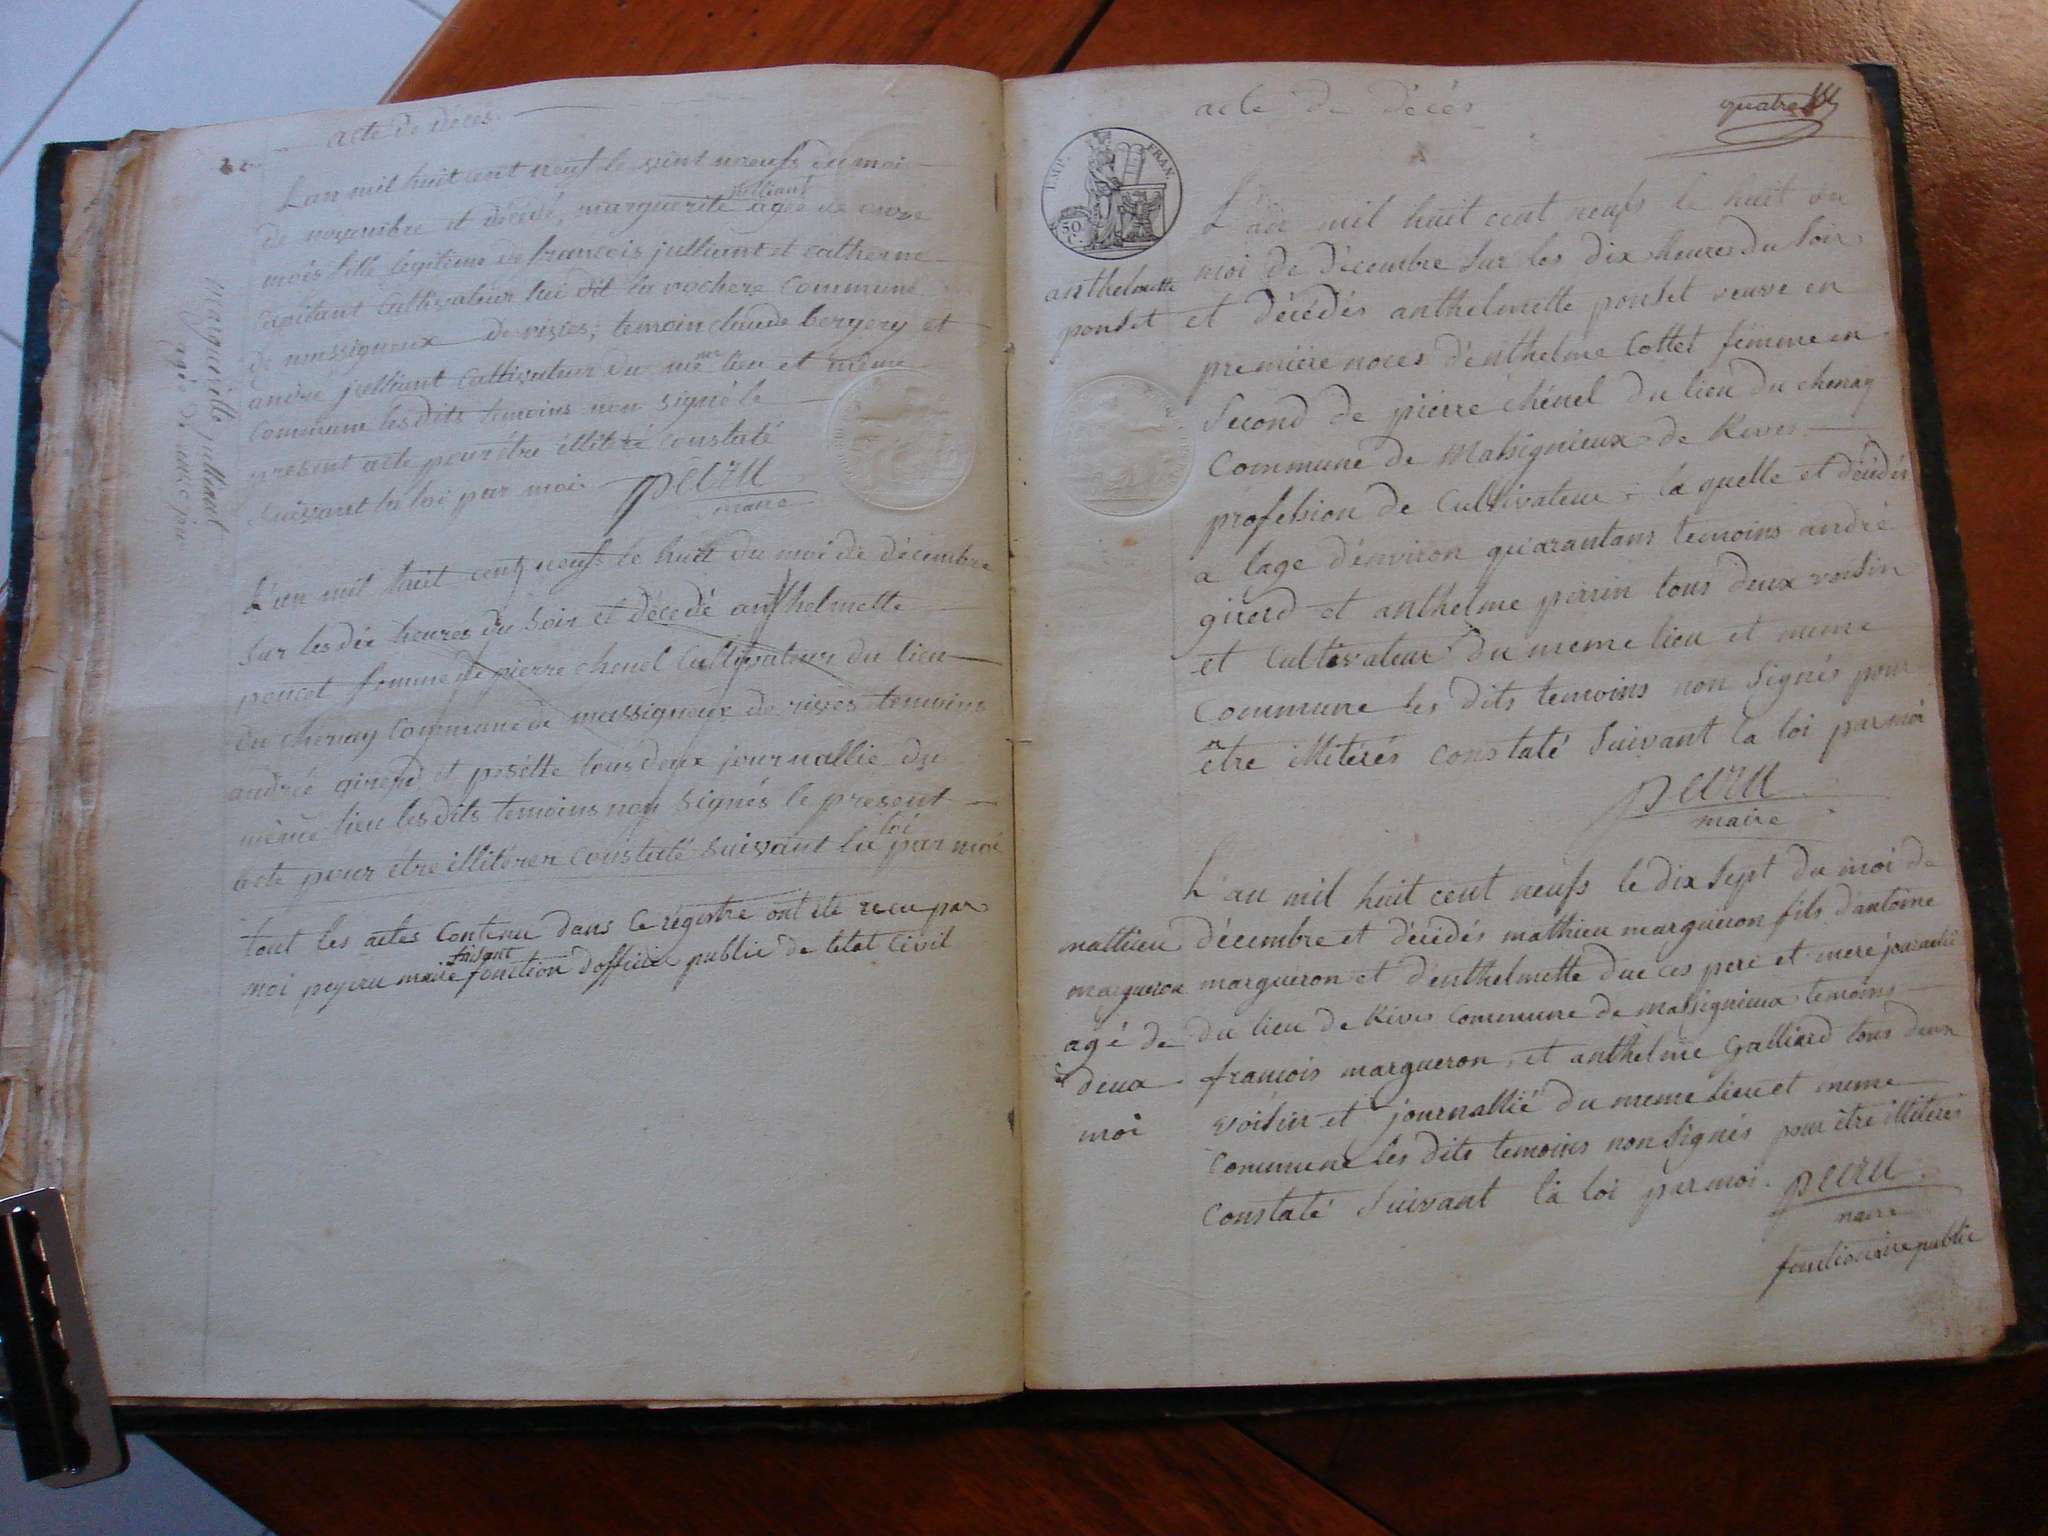 acte de décés
Lan mil huit cent neufs le vint neufs du moi
de novembre et décédé, marguerite julliant agée de onze
mois fille legitime de francois julliant et catherine
Capitant Cultivateur lui dit la rochere Commune
de massigneux de rives; temoin claude bergery et
andré julliant Cultivateur du même lieu et même
Commune lesdits temoins non signé le
present acte pour étre illitéré constaté
suivant la loi par moi
peeru
maire
margueritte julliant
agé de onze
L'an mil huit cent neufs le huit du moi de décembre
sur les dix heures du soir et décedé anthelmette
poncet femme de pierre chenel Cultivateur du lieu
du chenay Commune de massigneux de rives temoins
andréé girerd et posétte tous deux journallie du
même lieu les dits temoins non signés le present
acte pour etre illitérer constaté suivant la loi par moi
tout les actes contenu dans ce régistre ont été recu par
moi peyeru maire faisant fonction dofficier public de letat civil
acte de décés
quatre
IMP. FRAN.
50 C.
anthelmette
ponset
L'an mil huit cent neufs le huit du
moi de décembre sur les dix heures du soir
et décédés anthelmette ponset veuve en
premiére noces d'enthelme Cottet fémme en
second de pierre chénel du lieu du chenay
Commune de Massignieux de Rives
profession de Cultivateur; la quelle et décédés
a lage d'environ quarantans temoins andré
girerd et anthelme perrin tous deux voisin
et Cultivateur du meme lieu et meme
Commune les dits temoins non signés pour
etre illiterés constaté suivant la loi par moi
peeru
maire
mathieu
margueron
agé de
deux
moi
L'an mil huit cent neufs le dix sept du moi de
décembre et décédés mathieu margueron fils d'antoine
margueron et d'enthelmette duc ces pere et mere journalié
du lieu de Rives Commune de massignieux temoins
francois margueron, et anthelme Galliard tous deux
voisin et journallié du meme lieu et meme
Commune les dits temoins non signés pour étre illiterés
Constaté suivant la loi par moi. peeru
maire
fonctionnaire public